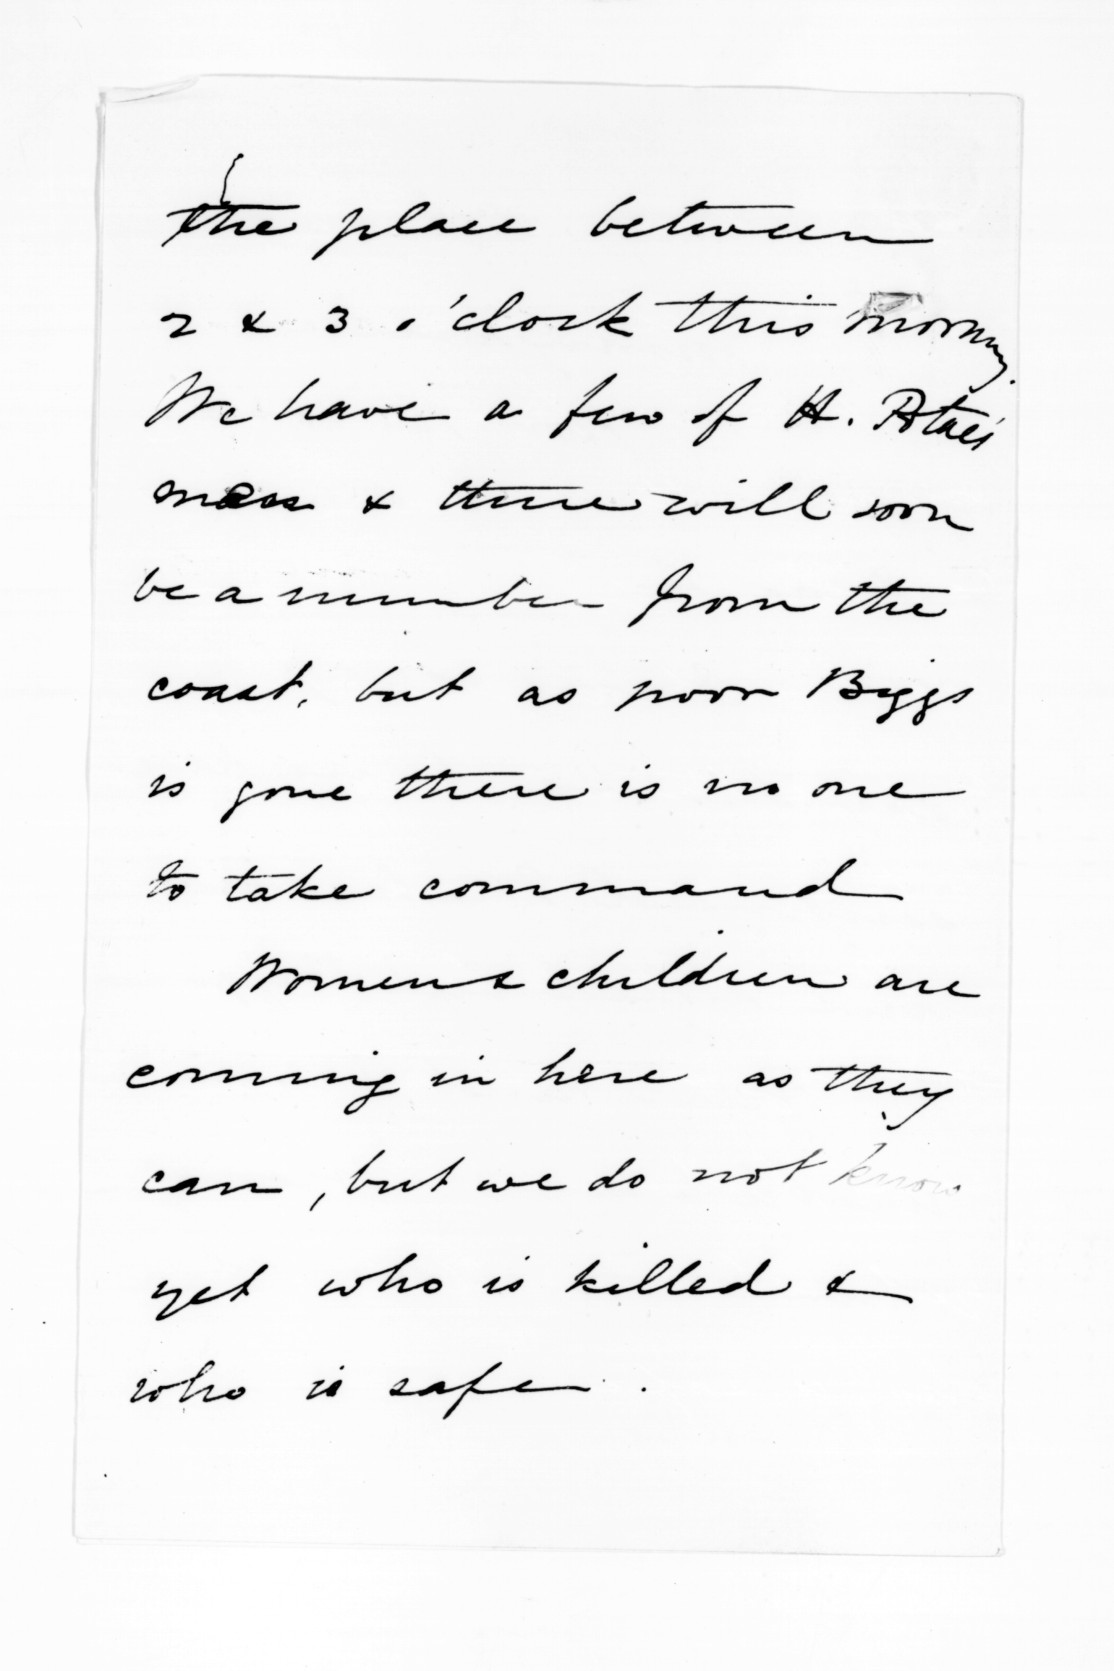 the place between
2 & 3 o'clock this morning.
We have a few of H. Potae's
men & there will soon
be a number from the
coast, but as poor Biggs
is gone there is no one
to take command
Women & children are
coming in here as they
can, but we do not know
yet who is killed &
who is safe.